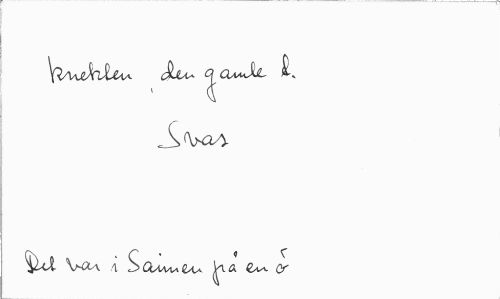 knekten, den gamle k.
Svar
Det var i Saimen på en ö